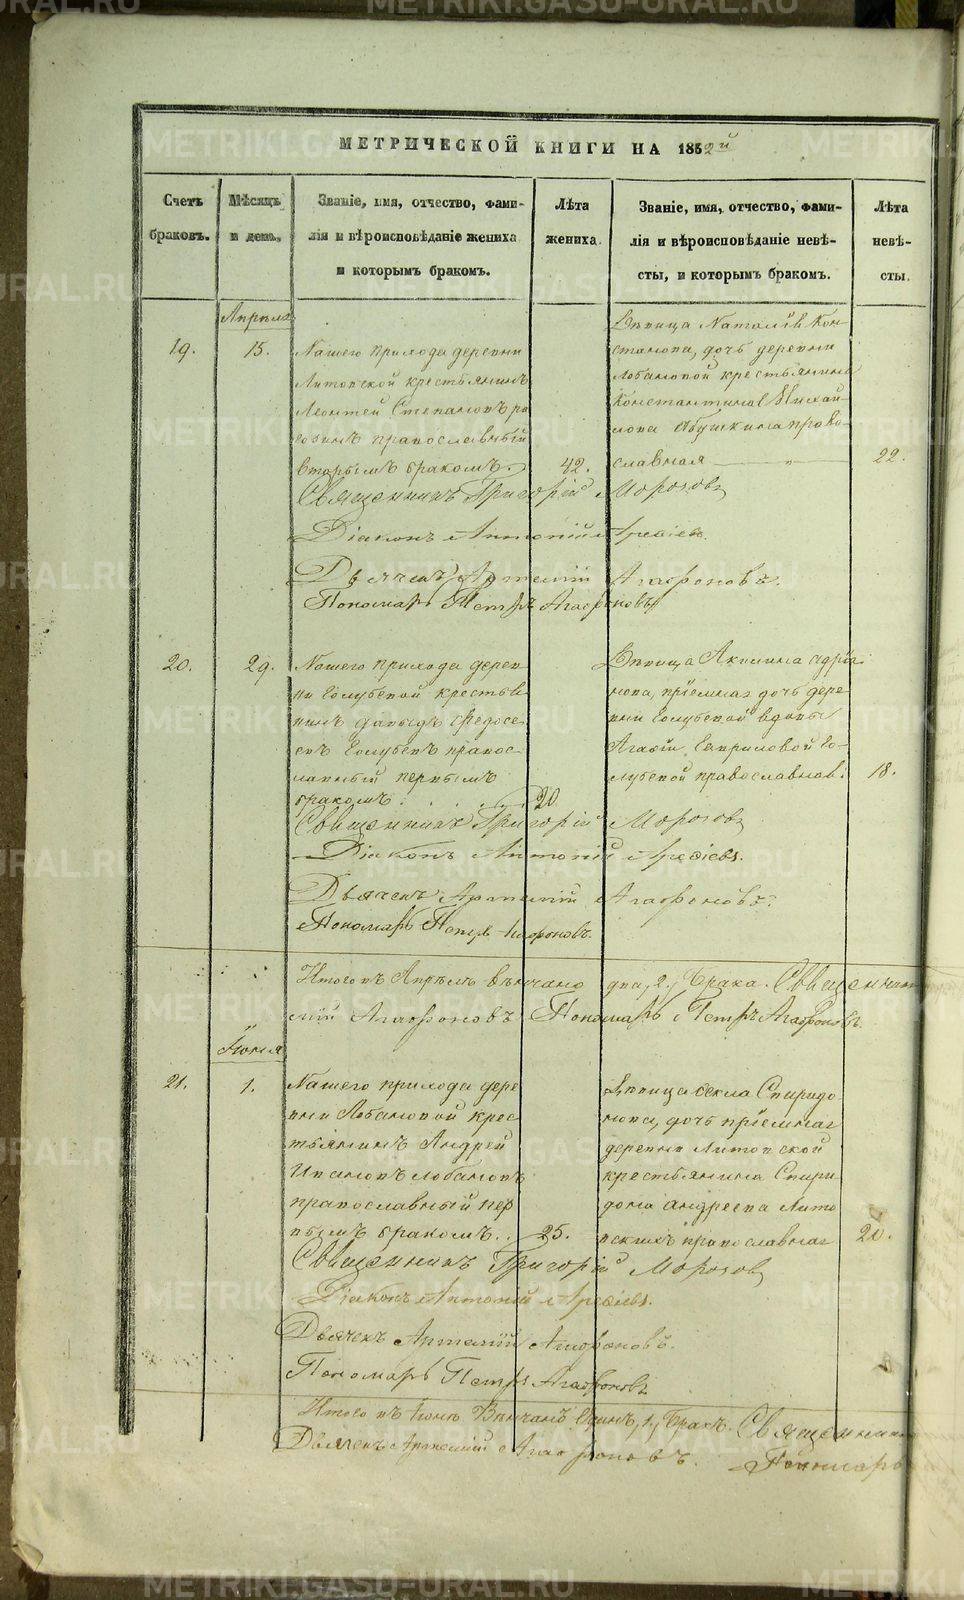 МЕТРИЧЕСКОЙ КНИГИ НА 1852й
Счетъ браковъ.
Мѣсяцъ и день.
Званіе, имя, отчество, фами-
лія и вѣроисповѣданіе жениха
и которымъ бракомъ.
Лѣта жениха.
Званіе, имя, отчество, фами-
лія и вѣроисповѣданіе невѣ-
сты, и которымъ бракомъ.
Лѣта невѣ-
сты.
Апрѣля
19.
15.
Нашего прихода деревни
Литовской крестьянинъ
Леонтей Степановъ
православный
вторымъ бракомъ.
42.
Дѣвица Наталія Кон-
стантинова, дочь деревни
Лобановой крестьянина
Константина Михай-
лова Абушкина право-
славная
22.
Священникъ Григорій Морозовъ
Діаконъ Антоній Арефьевъ.
Дьячекъ Артемій Агафоновъ.
Пономарь Петръ Агафоновъ
20.
29.
Нашего прихода дерев
ни Голубевой крестья
нинъ Давыдъ Федосе-
евъ Голубевъ правос-
лавный первымъ
бракомъ.
20
Дѣвица Акилина Адріа
нова, пріемная дочь дере
вни Голубевой вдовы
Агафіи Гавриловой Го-
лубевой православная.
18.
Священникъ Григорій Морозовъ
Діаконъ Антоній Арефьевъ.
Дьячекъ Артемій Агафоновъ.
Пономарь Петръ Агафоновъ.
Итого въ Апрѣлѣ вѣнчано два, 2, брака. Священник
мій Агафоновъ Пономарь Петръ Агафоновъ.
Іюня
21.
1.
Нашего прихода дере
вни Лобановой крес
тьянинъ Андрей
Ивановъ Лобановъ
православный пер
вымъ бракомъ.
25.
Дѣвица Фекла Спиридо
нова, дочь пріемная
деревни Литовской
крестьянина Спири
дона Андреева Лито
вскихъ православная
20.
Священникъ Григорій Морозовъ
Діаконъ Антоній Арефьевъ.
Дьячекъ Артемій Агафоновъ.
Пономарь Петръ Агафоновъ
Итого въ Іюнѣ Вѣнчанъ Одинъ, 1, Бракъ. Священник
Дьячекъ Артемій Агафоновъ. Пономарь
METRIKI.GASO-URAL.RU